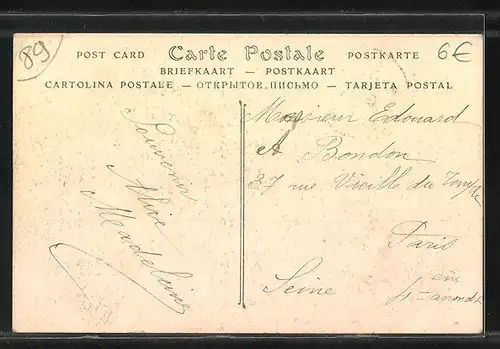 89
6€
POST CARD Carte Postale POSTKARTE
BRIEFKAART — POSTKAART
CARTOLINA POSTALE — ОТКРЫТОЕ ПИСЬМО — TARJETA POSTAL
Souvenir
Madeleine
Monsieur Edouard
A Bondon
37 rue Vieille du Temple
Paris
Seine